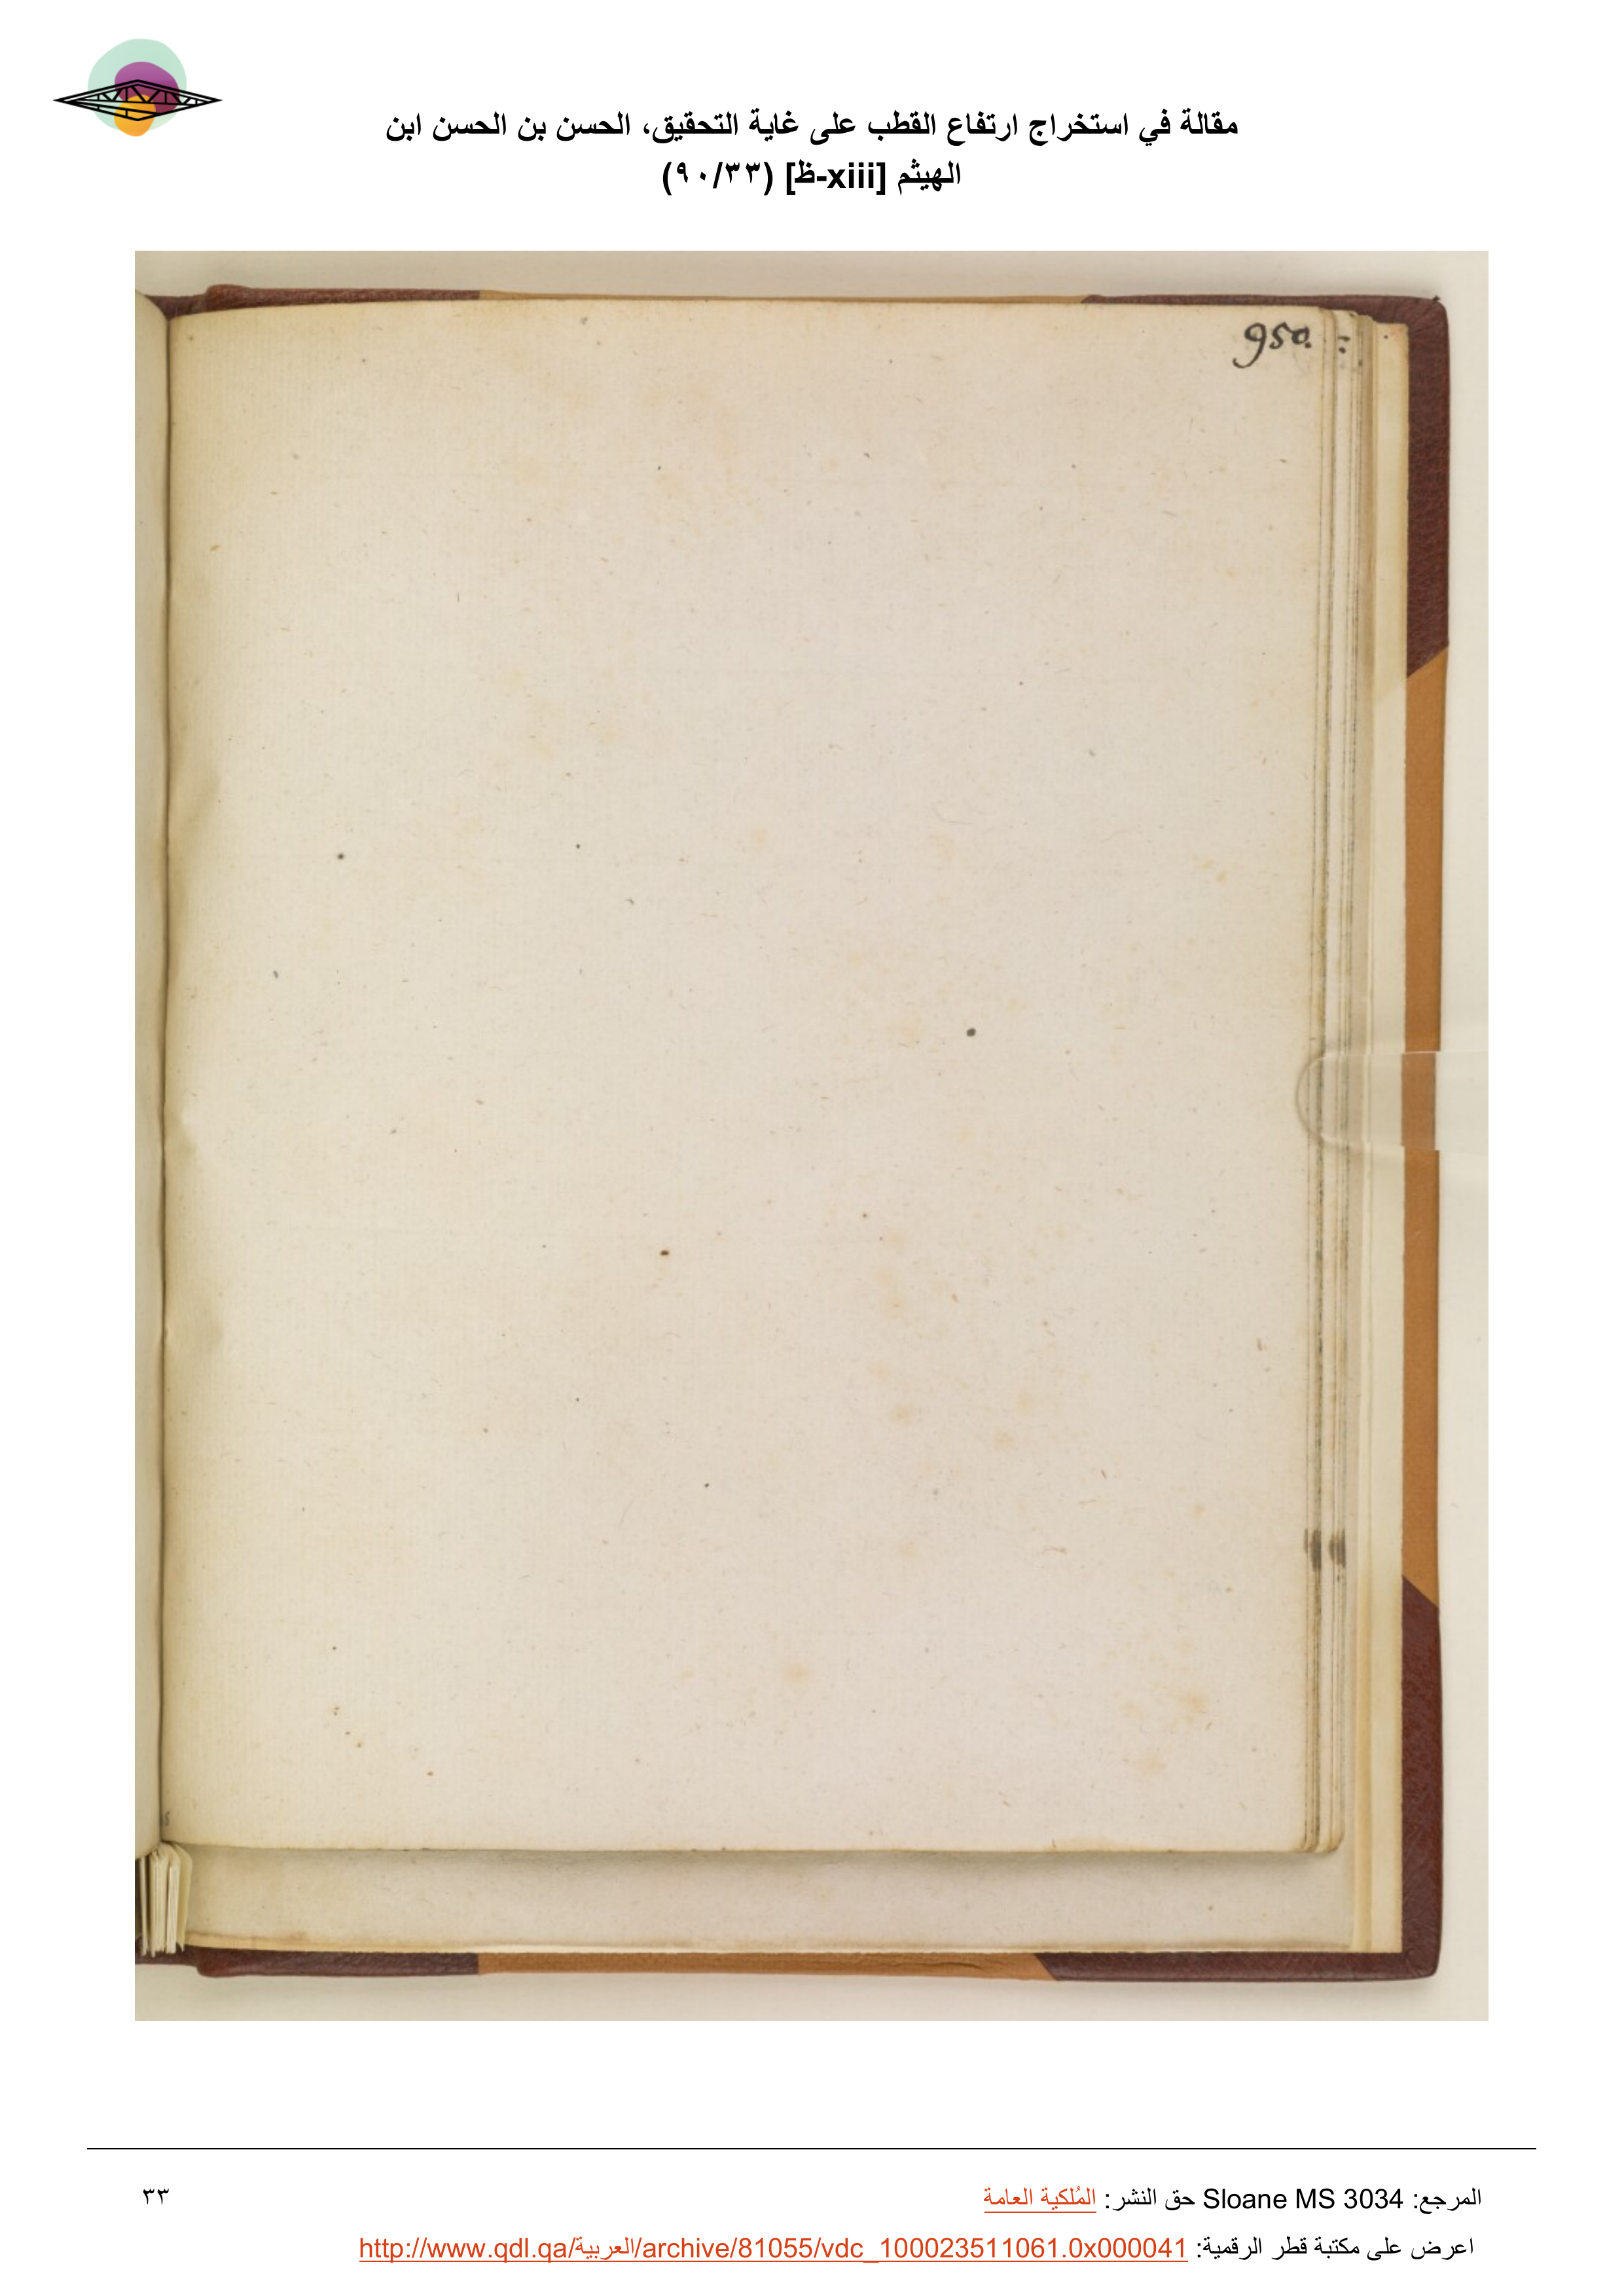 مقالة في استخراج ارتفاع القطب على غاية التحقيق، الحسن بن الحسن ابن
الهيثم [xiii-ظ] (٩٠/٣٣)
950.
المرجع: Sloane MS 3034 حق النشر: المُلكية العامة
٣٣
اعرض على مكتبة قطر الرقمية: http://www.qdl.qa/العربية/archive/81055/vdc_100023511061.0x000041